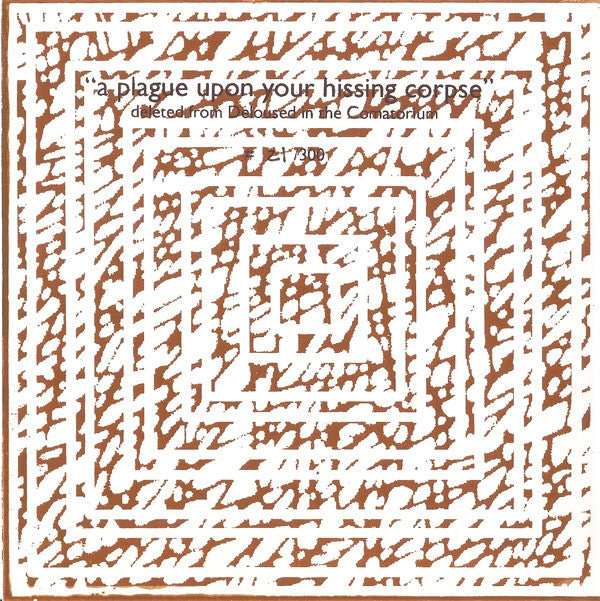 “a plague upon your hissing corpse”
deleted from Deloused in the Comatorium
# 121/300